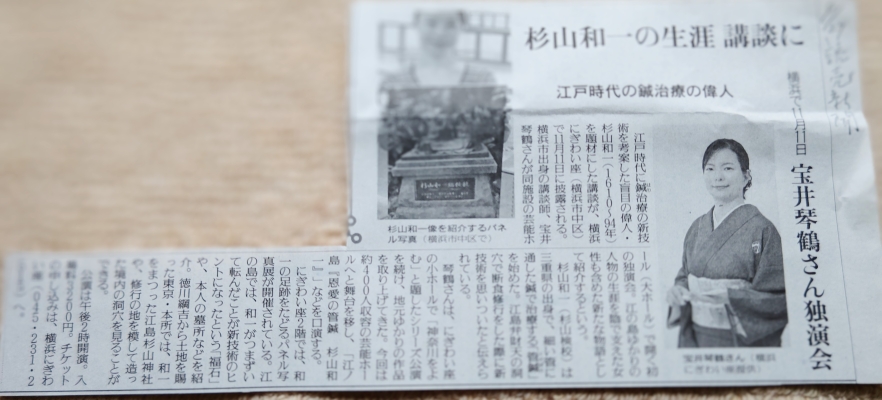 杉山和一の生涯 講談に
江戸時代の鍼治療の偉人
横浜で11月11日
宝井琴鶴さん独演会
江戸時代に鍼治療の新技
術を考案した盲目の偉人・
杉山和一(1610〜94年)
を題材にした講談が、横浜
にぎわい座(横浜市中区)
で11月11日に披露される。
横浜市出身の講談師、宝井
琴鶴さんが同施設の芸能ホ
ール(大ホール)で開く初
の独演会。江の島ゆかりの
人物の生涯を、陰で支えた女
性も含めた新たな物語とし
て紹介するという。
杉山和一(杉山検校)は
三重県の出身で、細い管に
通した鍼で治療する「管鍼」
を始めた。江島弁財天の洞
穴で断食修行をした際に新
技術を思いついたと伝えら
れている。
琴鶴さんは、にぎわい座
の小ホールで「神奈川をよ
む」と題したシリーズ公演
を続け、地元ゆかりの作品
を取り上げてきた。今回は
約400人収容の芸能ホー
ルへと舞台を移し、「江ノ
島『恩愛の管鍼 杉山和
一』」などを口演する。
にぎわい座2階では、和
一の足跡をたどるパネル写
真展が開催されている。江
の島では、和一がつまずい
て転んだことが新技術のヒ
ントになったという「福石」
や、本人の墓所などを紹
介。徳川綱吉から土地を賜
った東京・本所では、和一
をまつった江島杉山神社
や、修行の地を模して造っ
た境内の洞穴を見ることが
できる。
公演は午後2時開演。入
場料3200円。チケット
の申し込みは、横浜にぎわ
い座(045・231・2
杉山和一像を紹介するパネ
ル写真(横浜市中区で)
宝井琴鶴さん(横浜
にぎわい座提供)